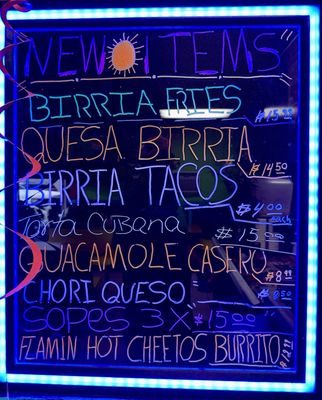 NEW ITEMS"
BIRRIA FRIES $15.99
QUESA BIRRIA $14.50
BIRRIA TACOS $4.00 each
Torta Cubana $15.00
GUACAMOLE CASERO $8.99
CHORI QUESO $9.50
SOPES 3X $15.00
FLAMIN HOT CHEETOS BURRITO $12.99